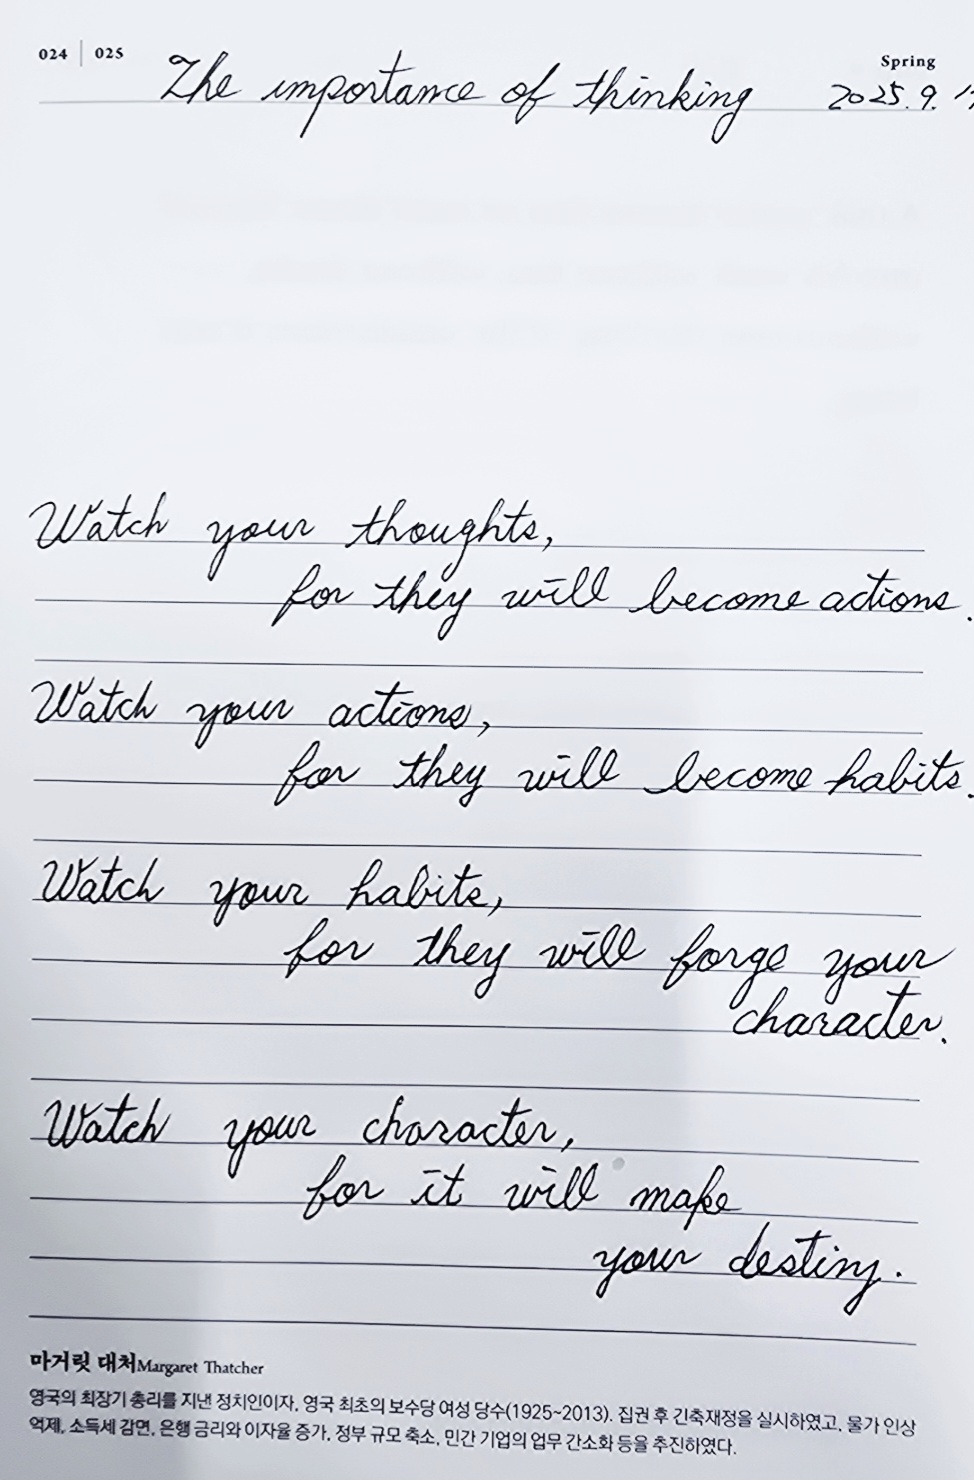 024 | 025
Spring
The importance of thinking 2025. 9.
Watch your thoughts,
for they will become actions.
Watch your actions,
for they will become habits.
Watch your habits,
for they will forge your
character.
Watch your character,
for it will make
your destiny.
마거릿 대처Margaret Thatcher
영국의 최장기 총리를 지낸 정치인이자, 영국 최초의 보수당 여성 당수(1925~2013). 집권 후 긴축재정을 실시하였고, 물가 인상
억제, 소득세 감면, 은행 금리와 이자율 증가, 정부 규모 축소, 민간 기업의 업무 간소화 등을 추진하였다.